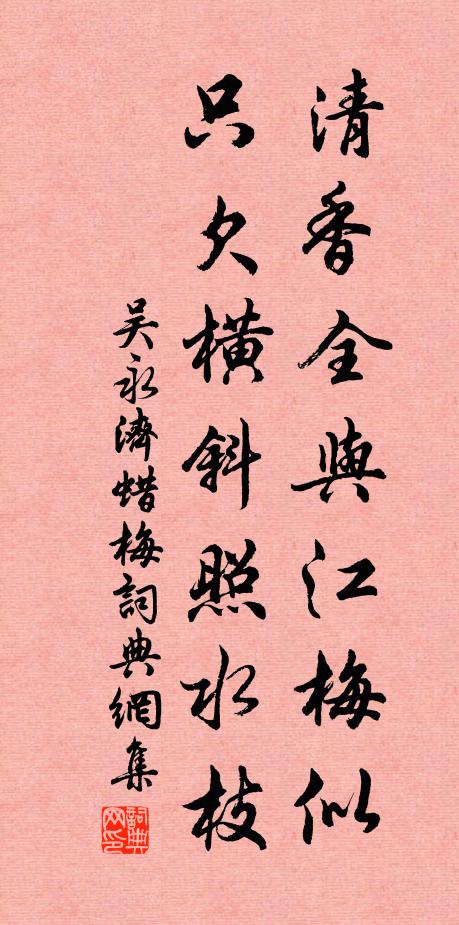 清香全與江梅似
只欠橫斜照水枝
吳永濟蜡梅詞典網集
詞典网印